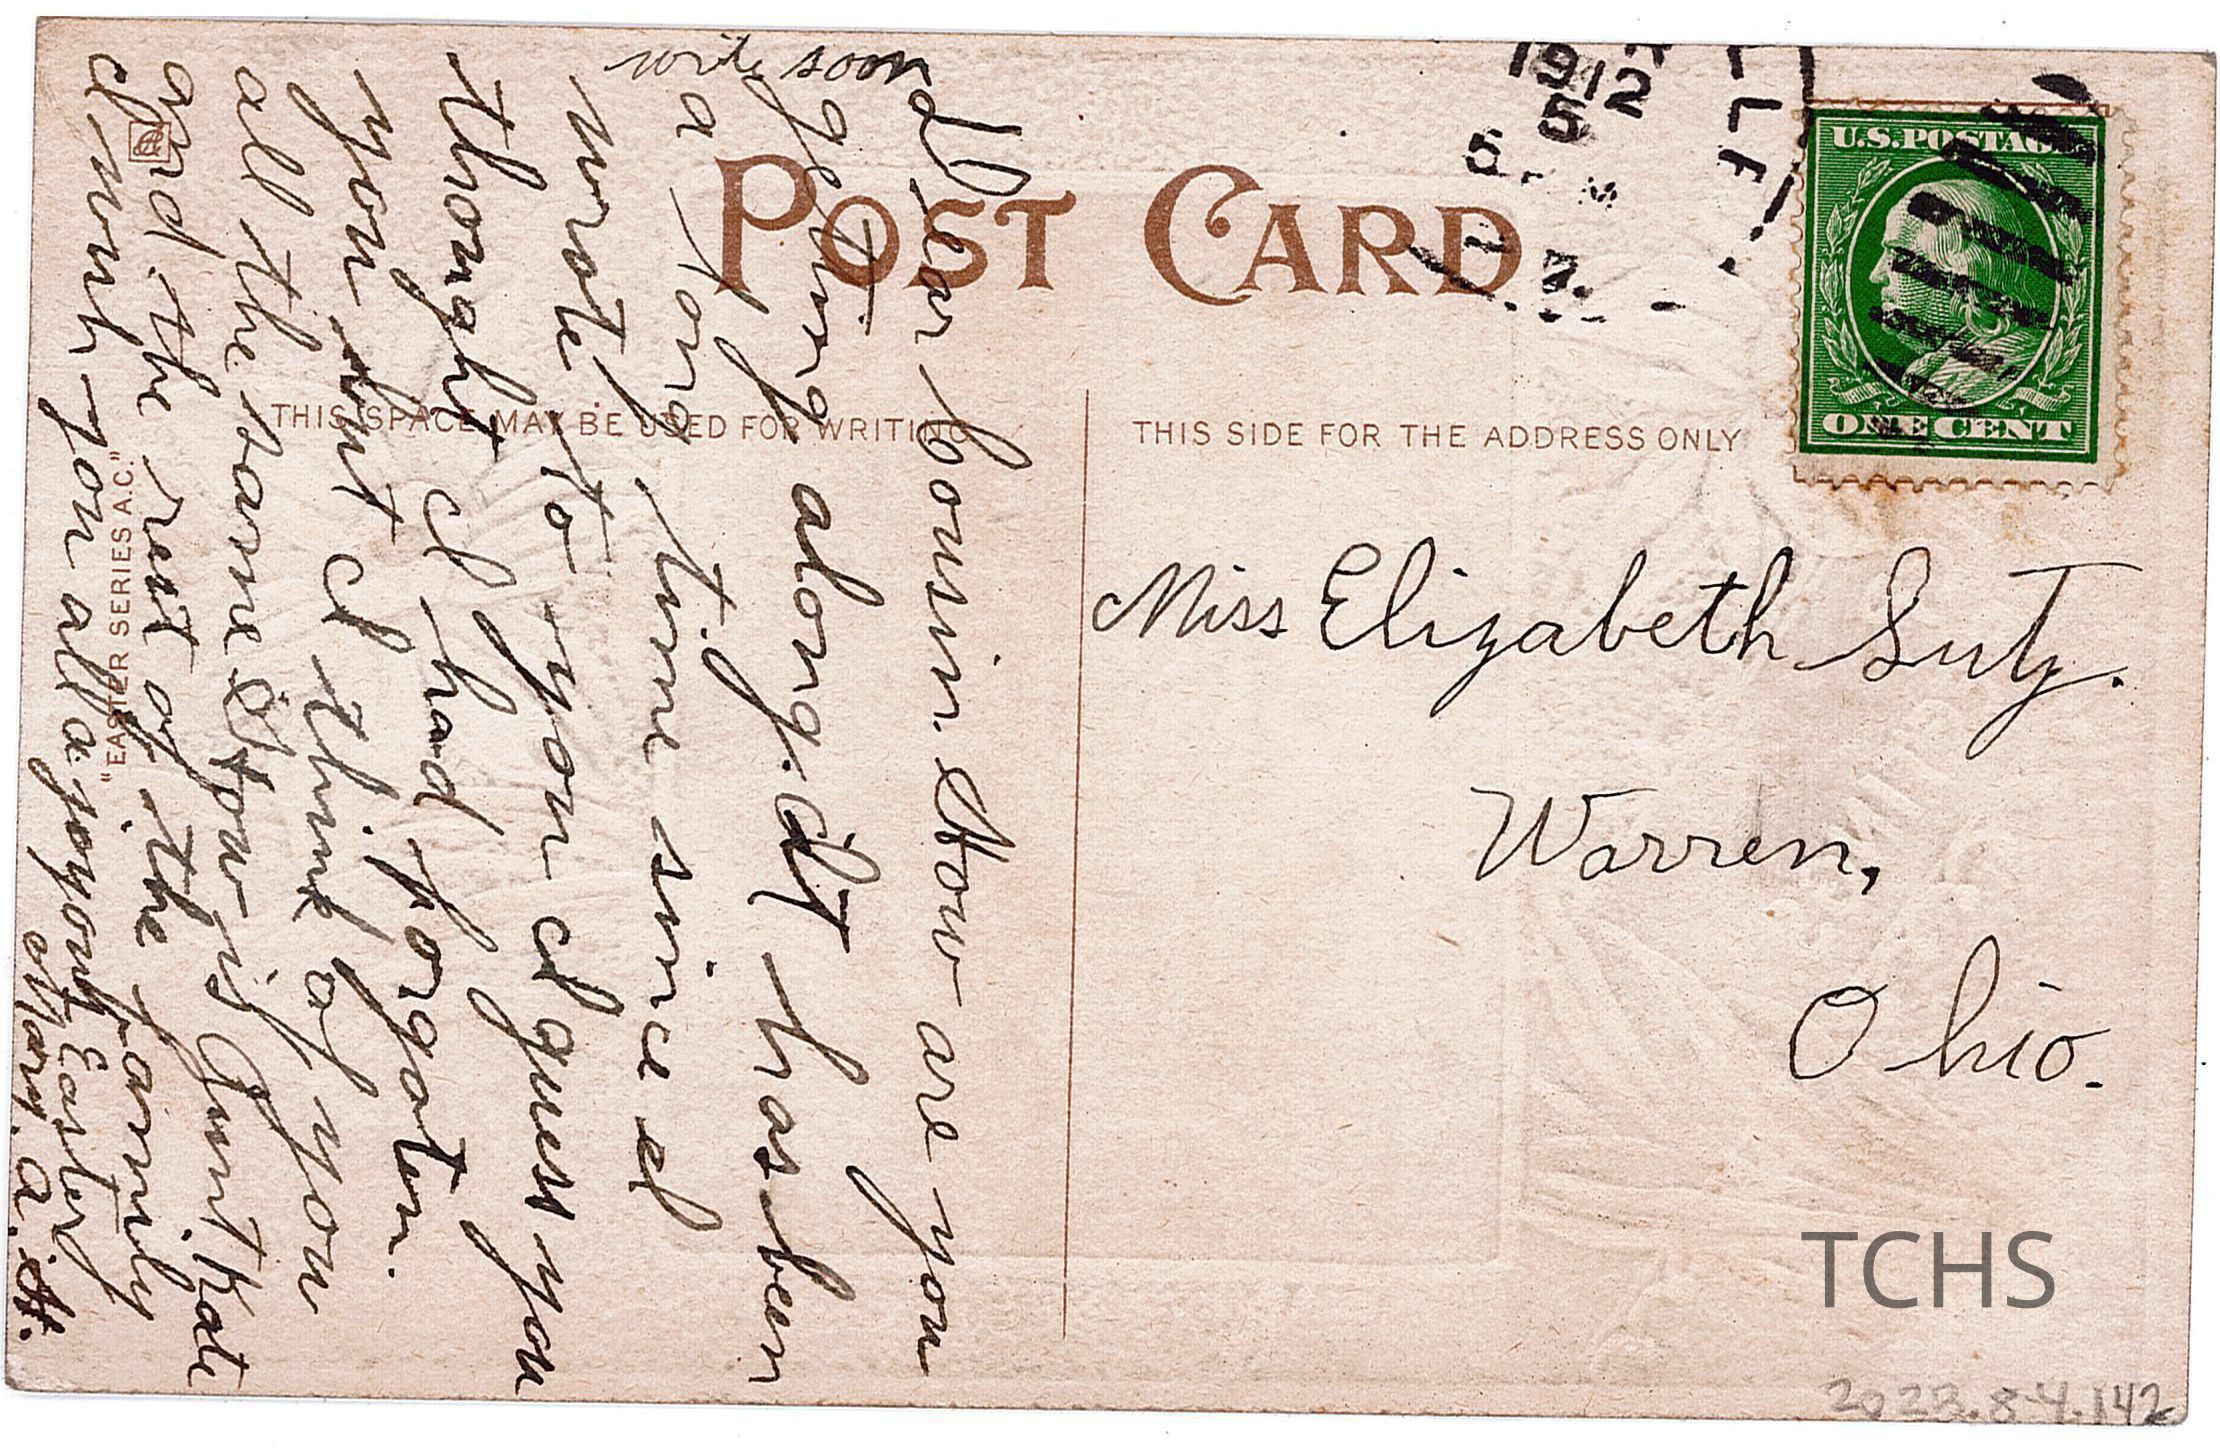 wite soon
Dear Cousin. How are you
geting along. It has been
a long time since I
wrote to you I guess you
thought I had forgoten.
you but I think of you
all the same. How is Aunt Kate
and the rest of the family
I wish you all a joyous Eastery
Mary. A. H.
POST CARD
THIS SPACE MAY BE USED FOR WRITING
THIS SIDE FOR THE ADDRESS ONLY
"EASTER SERIES A.C."
1912
5
5
M
U.S. POSTAGE
ONE CENT
Miss Elizabeth Sutz.
Warren,
Ohio.
TCHS
2023.84.142